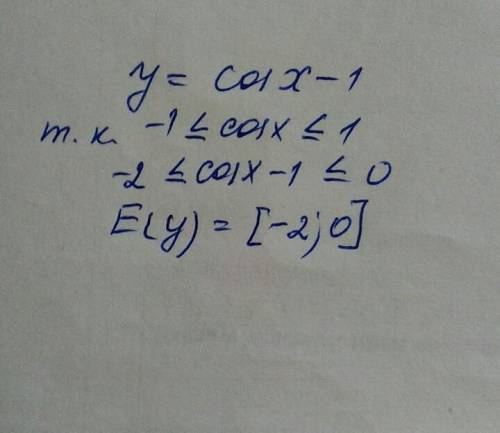 y = cos x - 1
т.к. -1 ≤ cos x ≤ 1
-2 ≤ cos x - 1 ≤ 0
E(y) = [-2; 0]